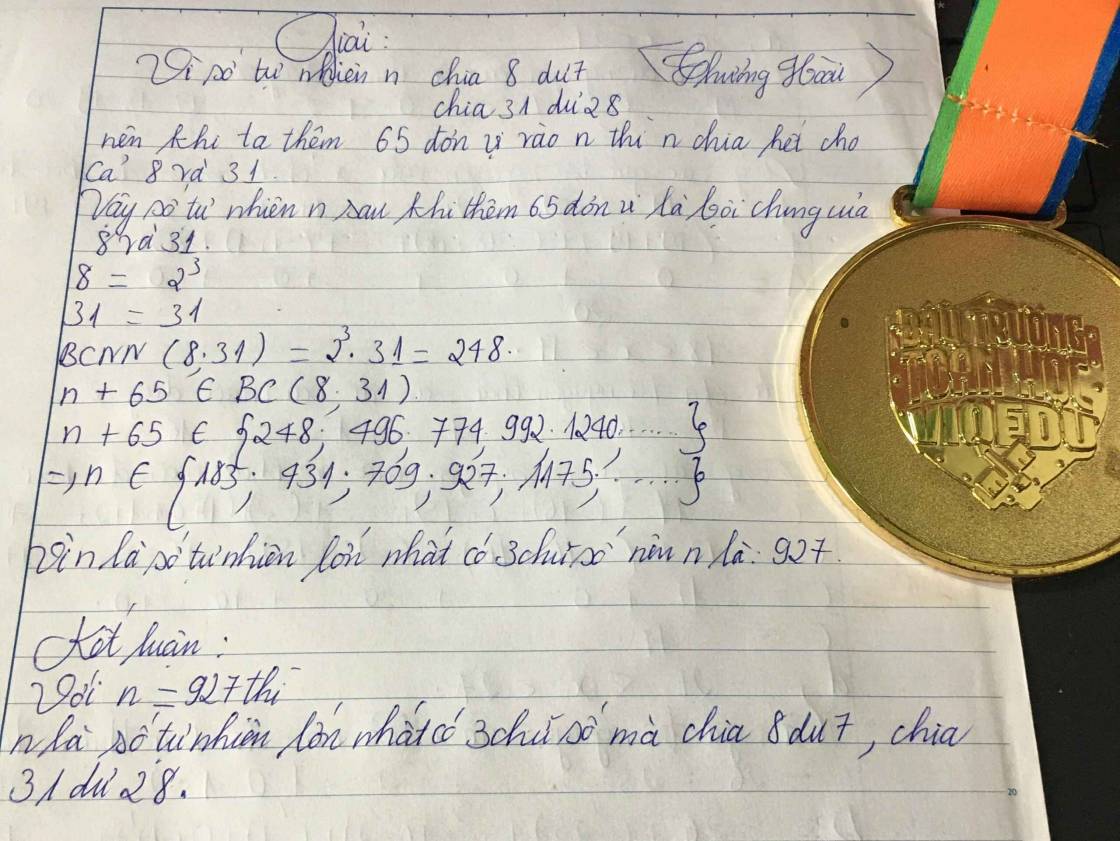 Giải:
Vì số tự nhiên n chia 8 dư 7
<Phương Hoài>
chia 31 dư 28
nên khi ta thêm 65 đơn vị vào n thì n chia hết cho
cả 8 và 31.
Vậy số tự nhiên n sau khi thêm 65 đơn vị là bội chung của
8 và 31.
8 = 2³
31 = 31
BCNN (8; 31) = 2³. 31 = 248.
n + 65 ∈ BC (8; 31)
n + 65 ∈ {248; 496; 774; 992; 1240; ......}
=> n ∈ {183; 431; 709; 927; 1175; ......}
Vì n là số tự nhiên lớn nhất có 3 chữ số nên n là: 927.
Kết luận:
Với n = 927 thì
n là số tự nhiên lớn nhất có 3 chữ số mà chia 8 dư 7, chia
31 dư 28.
20
ĐẤU TRƯỜNG
TOÁN HỌC
VIOEDU